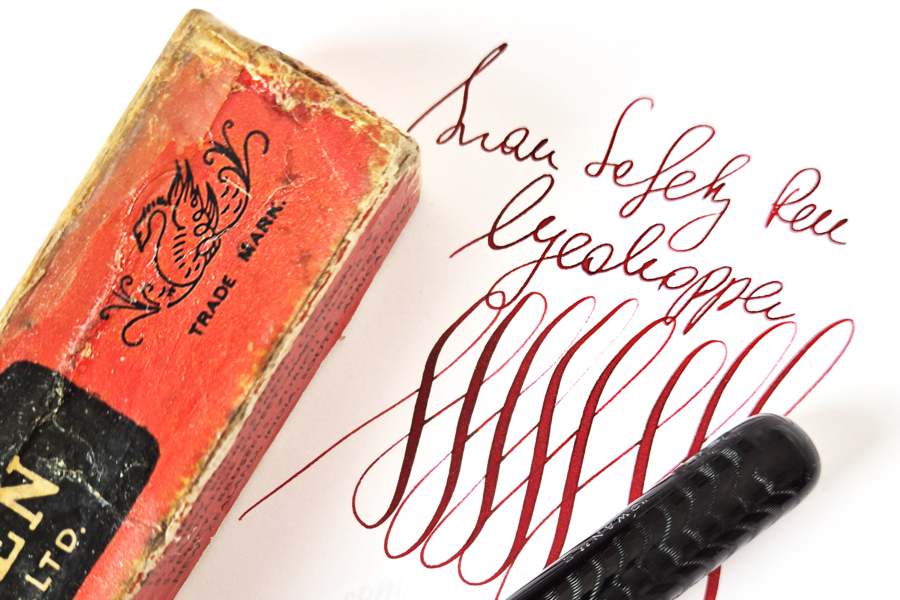 TRADE MARK.
EN
LTD.
Swan Safety Pen
Eyedropper
"SWAN"